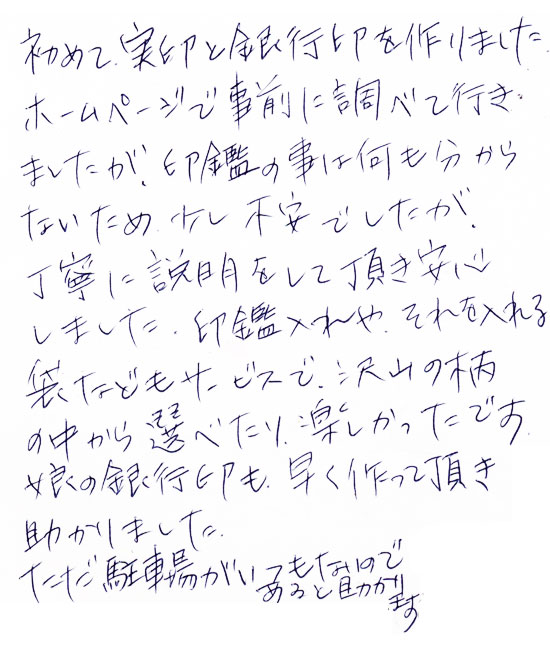 初めて、実印と銀行印を作りました。
ホームページで事前に調べて行き
ましたが、印鑑の事は何も分から
ないため、少し不安でしたが、
丁寧に説明をして頂き安心
しました。印鑑入れや、それを入れる
袋などもサービスで、沢山の柄
の中から選べたり、楽しかったです。
娘の銀行印も、早く作って頂き
助かりました。
ただ駐車場がいつもないので
あると助かります